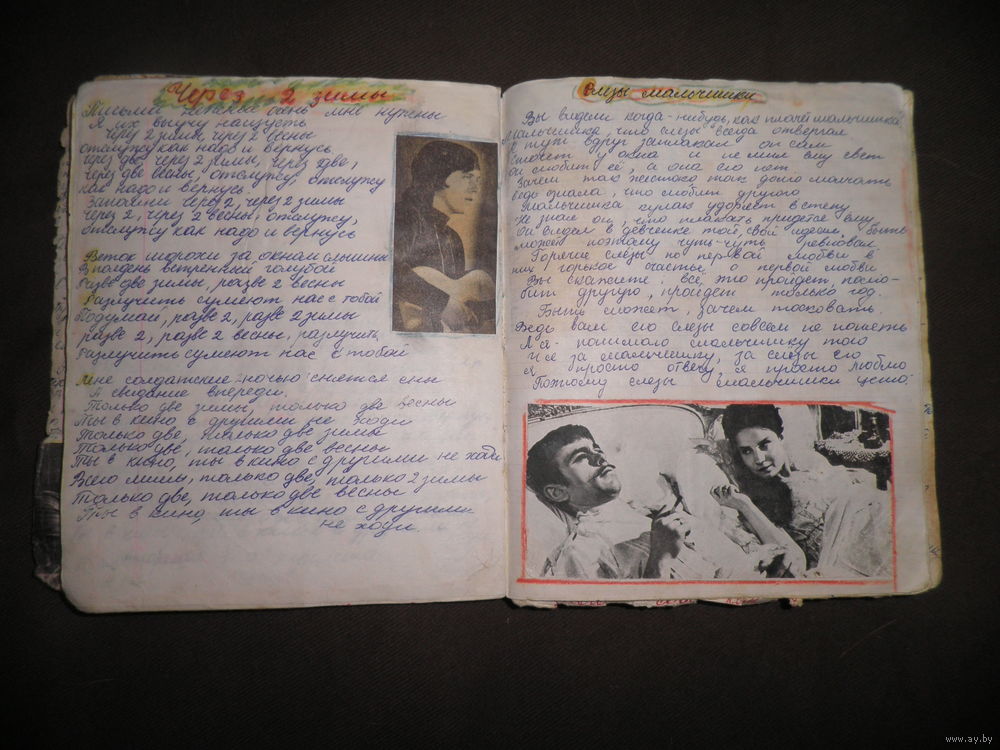 Через 2 зимы
Письма нежные очень мне нужны
Я их выучу наизусть
Через 2 зимы, через 2 весны
отслужу как надо и вернусь
Через две, через 2 зимы, через две,
через две весны, отслужу, отслужу
как надо и вернусь.
Запомни через 2, через 2 зимы
через 2, через 2 весны, отслужу,
отслужу как надо и вернусь
Веток шорохи за окном слышны
В полдень ветренный голубой
Разве две зимы, разве 2 весны
Разлучить сумеют нас с тобой
Подумай, разве 2, разве 2 зимы
разве 2, разве 2 весны, разлучить
разлучить сумеют нас с тобой
Мне солдатские ночью снятся сны
А свидание впереди.
Только две зимы, только две весны
Ты в кино с другими не ходи
Только две, только две зимы
Только две, только две весны
Ты в кино, ты в кино с другими не ходи
Всего лишь, только две, только 2 зимы
Только две, только две весны
Ты в кино, ты в кино с другими
не ходи.
Слезы мальчишки
Вы видели когда-нибудь, как плачет мальчишка
Мальчишка, что слезы всегда отвергал
И тут вдруг заплакал он сам
Стоит у окна и не мил ему свет
Он любит её, а она его нет.
Зачем так жестоко так долго молчать
ведь знала, что любит другого
Мальчишка кулак ударяет в стену
Не знал он, что плакать придется ему
Он видел в девченке той, свой идеал, быть
может поэтому чуть-чуть ревновал.
Горячие слезы по первой любви в
них горькое счастье о первой любви
Вы скажите: всё, это пройдет, полю-
бит другую, пройдет только год.
Быть может, зачем тосковать.
Ведь вам его слезы совсем не понять
А я - понимаю мальчишку того
И я за мальчишку, за слезы его
Я просто отвечу, я просто люблю
Поэтому слезы мальчишки ценю.
www.ay.by